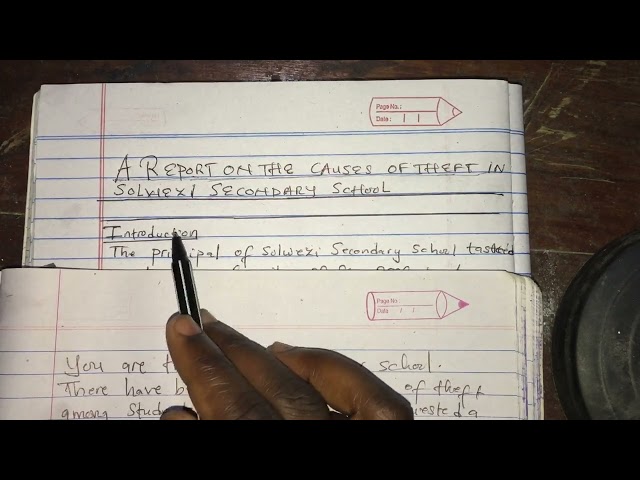 Page No.:
Date: | |
A REPORT ON THE CAUSES OF THEFT IN
SOLWEZI SECONDARY SCHOOL
Introduction
The principal of Solwezi Secondary School tasked
Page No.
Date / /
You are the school.
There have b of theft
among Stude ested a